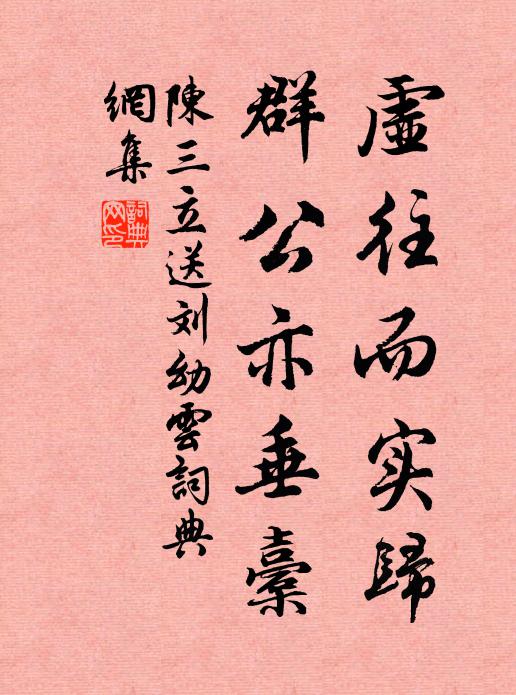 虛往而实歸
群公亦垂橐
陳三立送刘幼雲詞典
網集
詞典
网印